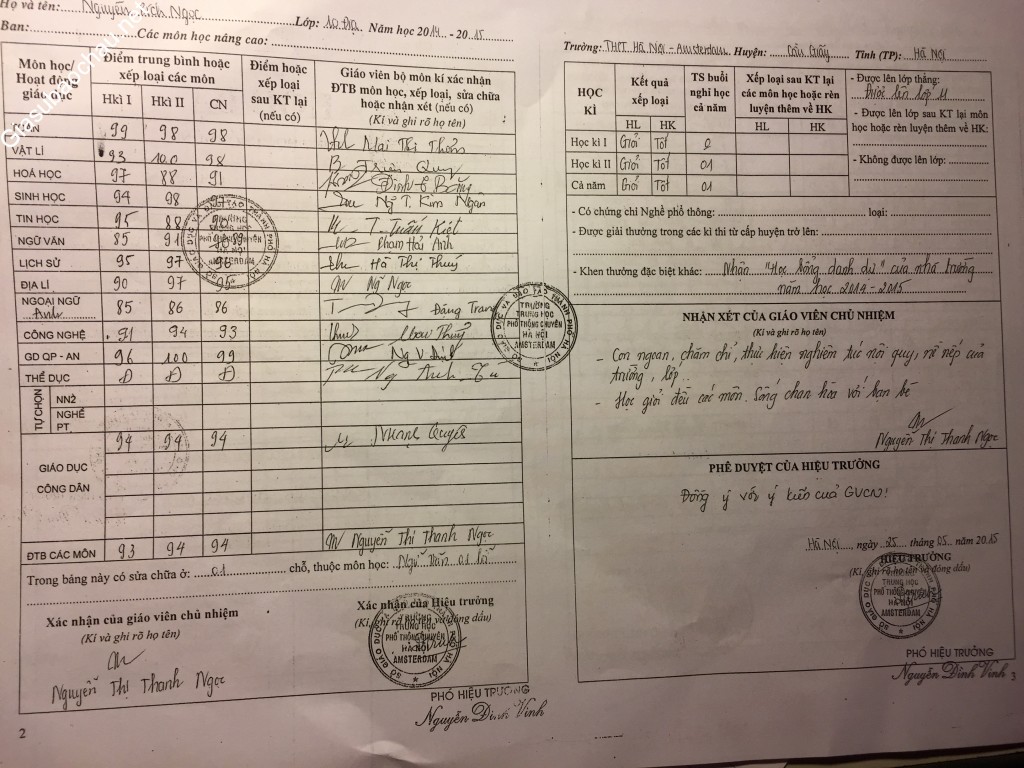 Họ và tên: Nguyễn Bích Ngọc Lớp: 10 Địa Năm học 2014 - 2015
Ban: Các môn học nâng cao:
Môn học/ Hoạt động giáo dục
Điểm trung bình hoặc xếp loại các môn
Hkì I Hkì II CN
Điểm hoặc xếp loại sau KT lại (nếu có)
Giáo viên bộ môn kí xác nhận ĐTB môn học, xếp loại, sửa chữa hoặc nhận xét (nếu có)
(Kí và ghi rõ họ tên)
TOÁN 99 98 98 Mai Thị Thơm
VẬT LÍ 93 100 98 Quy
HOÁ HỌC 97 88 91 Đinh Bằng
SINH HỌC 94 98 97 Ng T. Kim Ngan
TIN HỌC 95 88 T. Tuấn Kiệt
NGỮ VĂN 85 91 89 Phạm Hải Anh
LỊCH SỬ 95 97 96 Hà Thị Thuý
ĐỊA LÍ 90 97 95 Ng Ngọc
NGOẠI NGỮ Anh 85 86 86 Đặng Trang
CÔNG NGHỆ 91 94 93 Thuỷ
GD QP - AN 96 100 99
THỂ DỤC Đ Đ Đ Ng Anh Tu
TỰ CHỌN
NN2
NGHỀ PT
94 94 94 Quyên
GIÁO DỤC
CÔNG DÂN
ĐTB CÁC MÔN 93 94 94 Nguyễn Thị Thanh Ngọc
Trong bảng này có sửa chữa ở: 01 chỗ, thuộc môn học: Ngữ Văn 01 lỗi
Xác nhận của giáo viên chủ nhiệm
(Kí và ghi rõ họ tên)
Nguyễn Thị Thanh Ngọc
Xác nhận của Hiệu trưởng
(Kí, ghi rõ họ tên và đóng dấu)
TRƯỜNG TRUNG HỌC PHỔ THÔNG CHUYÊN HÀ NỘI AMSTERDAM
PHÓ HIỆU TRƯỞNG
Nguyễn Đình Vinh
2
Trường: THPT Hà Nội - Amsterdam Huyện: Cầu Giấy Tỉnh (TP): Hà Nội
HỌC KÌ
Kết quả xếp loại
HL HK
TS buổi nghỉ học cả năm
Xếp loại sau KT lại các môn học hoặc rèn luyện thêm về HK
HL HK
- Được lên lớp thẳng:
Được lên lớp 11
- Được lên lớp sau KT lại môn học hoặc rèn luyện thêm về HK:
- Không được lên lớp:
Học kì I Giỏi Tốt 0
Học kì II Giỏi Tốt 01
Cả năm Giỏi Tốt 01
- Có chứng chỉ Nghề phổ thông: loại:
- Được giải thưởng trong các kì thi từ cấp huyện trở lên:
- Khen thưởng đặc biệt khác: Nhận "Học bổng danh dự" của nhà trường
năm học 2014 - 2015
SỞ GIÁO DỤC VÀ ĐÀO TẠO THÀNH PHỐ HÀ NỘI
TRƯỜNG TRUNG HỌC PHỔ THÔNG CHUYÊN HÀ NỘI AMSTERDAM
NHẬN XÉT CỦA GIÁO VIÊN CHỦ NHIỆM
(Kí và ghi rõ họ tên)
- Con ngoan, chăm chỉ, thực hiện nghiêm túc nội quy, nề nếp của
trường, lớp..
- Học giỏi đều các môn. Sống chan hòa với bạn bè
Nguyễn Thị Thanh Ngọc
PHÊ DUYỆT CỦA HIỆU TRƯỞNG
Đồng ý với ý kiến của GVCN!
Hà Nội, ngày 25 tháng 05 năm 2015
HIỆU TRƯỞNG
(Kí, ghi rõ họ tên và đóng dấu)
TRUNG HỌC PHỔ THÔNG CHUYÊN HÀ NỘI AMSTERDAM
PHÓ HIỆU TRƯỞNG
Nguyễn Đình Vinh
3